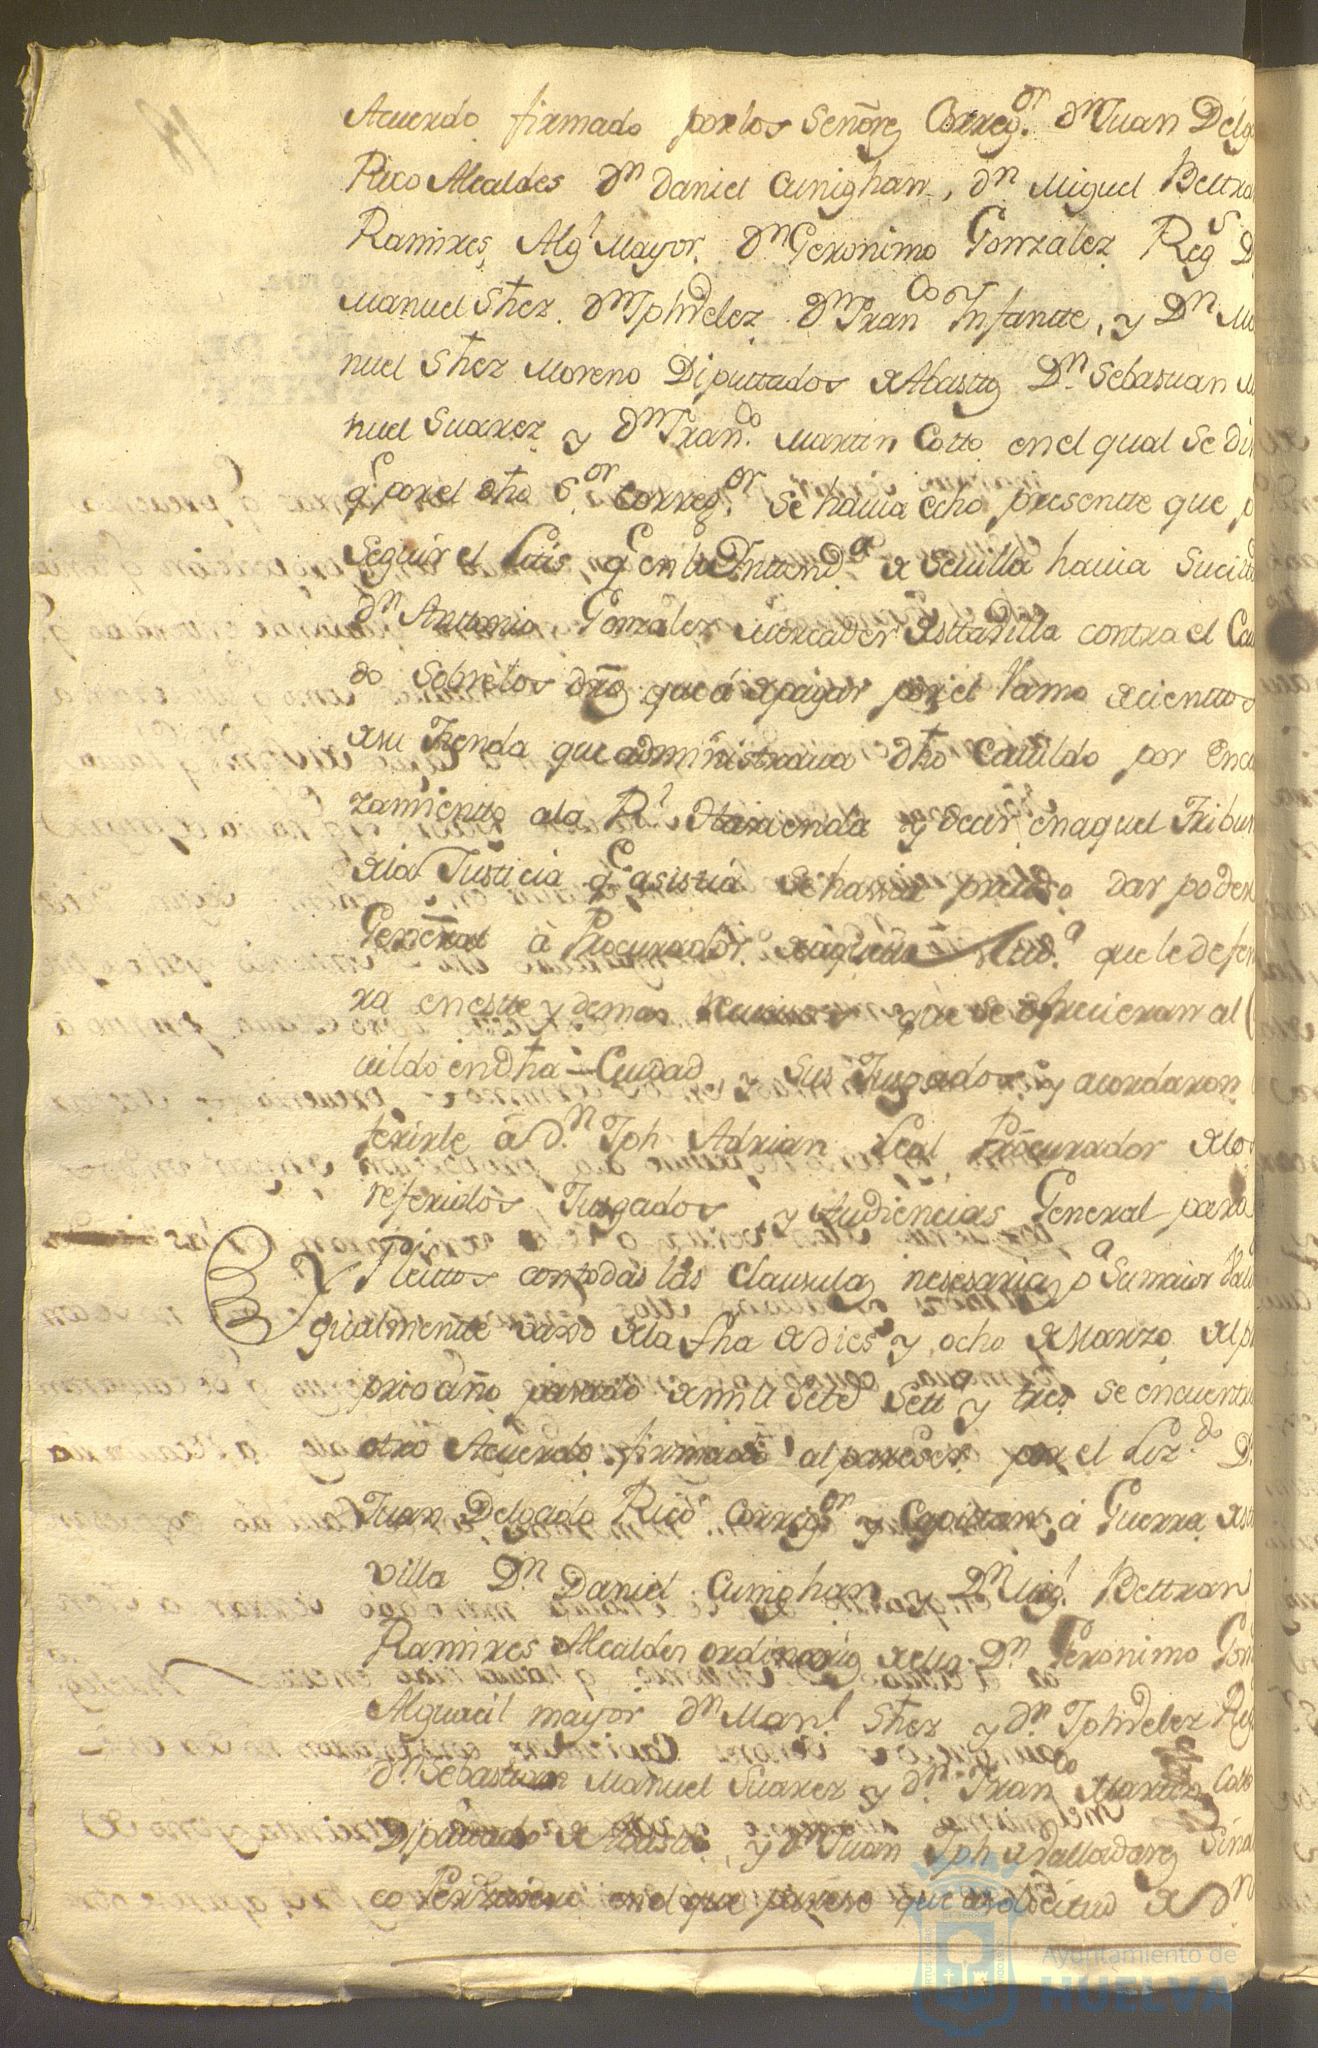 Acuerdo firmado por los Señores Correg.or Dn Juan Delg
Rico Alcaldes Dn Daniel Cunighan, Dn Miguel Beltra
Ramires, Algl Mayor, Dn Geronimo Gonzalez Regs D
Manuel Shez Dn Jph Velez Dn Franco Infantte, y Dn Ma
nuel Shez Moreno Diputtados de Abastos Dn Sebastian M
nuel Suarez y Dn Franco Martin Cotto en el qual se di
q por el dho Sor Corregor se havia echo presentte que p
seguir el Litis q en la Inttenda de Sevilla havia Sucitt
Dn Anttonio Gonzalez Mercader de estta Villa contra el Ca
do Sobre los dros que á de pagar por el Ramo de cienttos
de su Tienda que administrava dho Cavildo por Enca
zamientto a la Rl Hazienda y decir en aquel Tribun
de la Justicia q asistia se havia preciso dar poder
General á Procurador de aquella que le defen
ra en este y demas que se ofrecieran al C
vildo en dha Ciudad y sus Jusgados y acordaron
ferirle á Dn Jph Adrian Leal Procurador de lo
referidos Jusgados y Audiencias General para
Pleittos con todas las clausulas nesesarias pa su maior Vali
Y gualmentte vajo de la fha de dies y ocho de Marzo del p
prio año pasado de mil Sets Sett y tres se encuentr
otro Acuerdo firmado al parecer por el Lizdo D
Juan Delgado Rico Corregor y Capittan á Guerra de est
villa Dn Daniel Cunighan y Dn Migl Belttran
Ramires Alcaldes ordinarios de ella Dn Geronimo Gon
Alguacil mayor Dn Manl Shez y Dn Jph Velez Reg
Dn Sebastian Manuel Suarez y Dn Franco Martin Cotto
Diputtados de Abastos, y Dn Juan Jph de Valladares Sindi
co Personero en el que parese que a solicitud de Dn
Ayuntamiento de
HUELVA